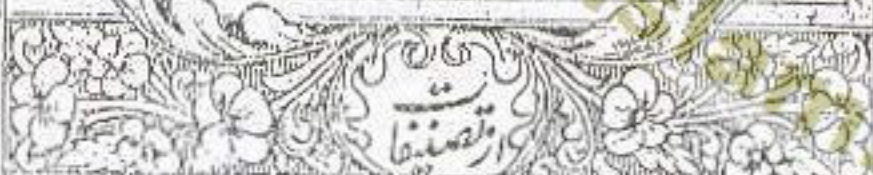 از تصنیفات